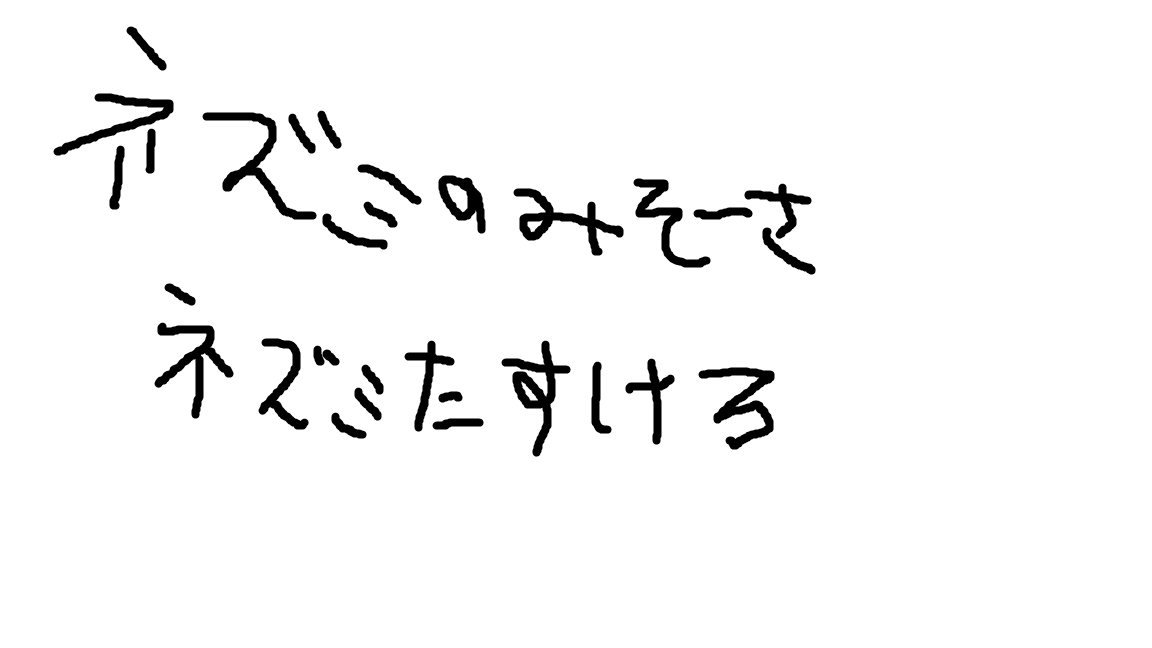 ネズミのみそーさ
ネズミたすけろ